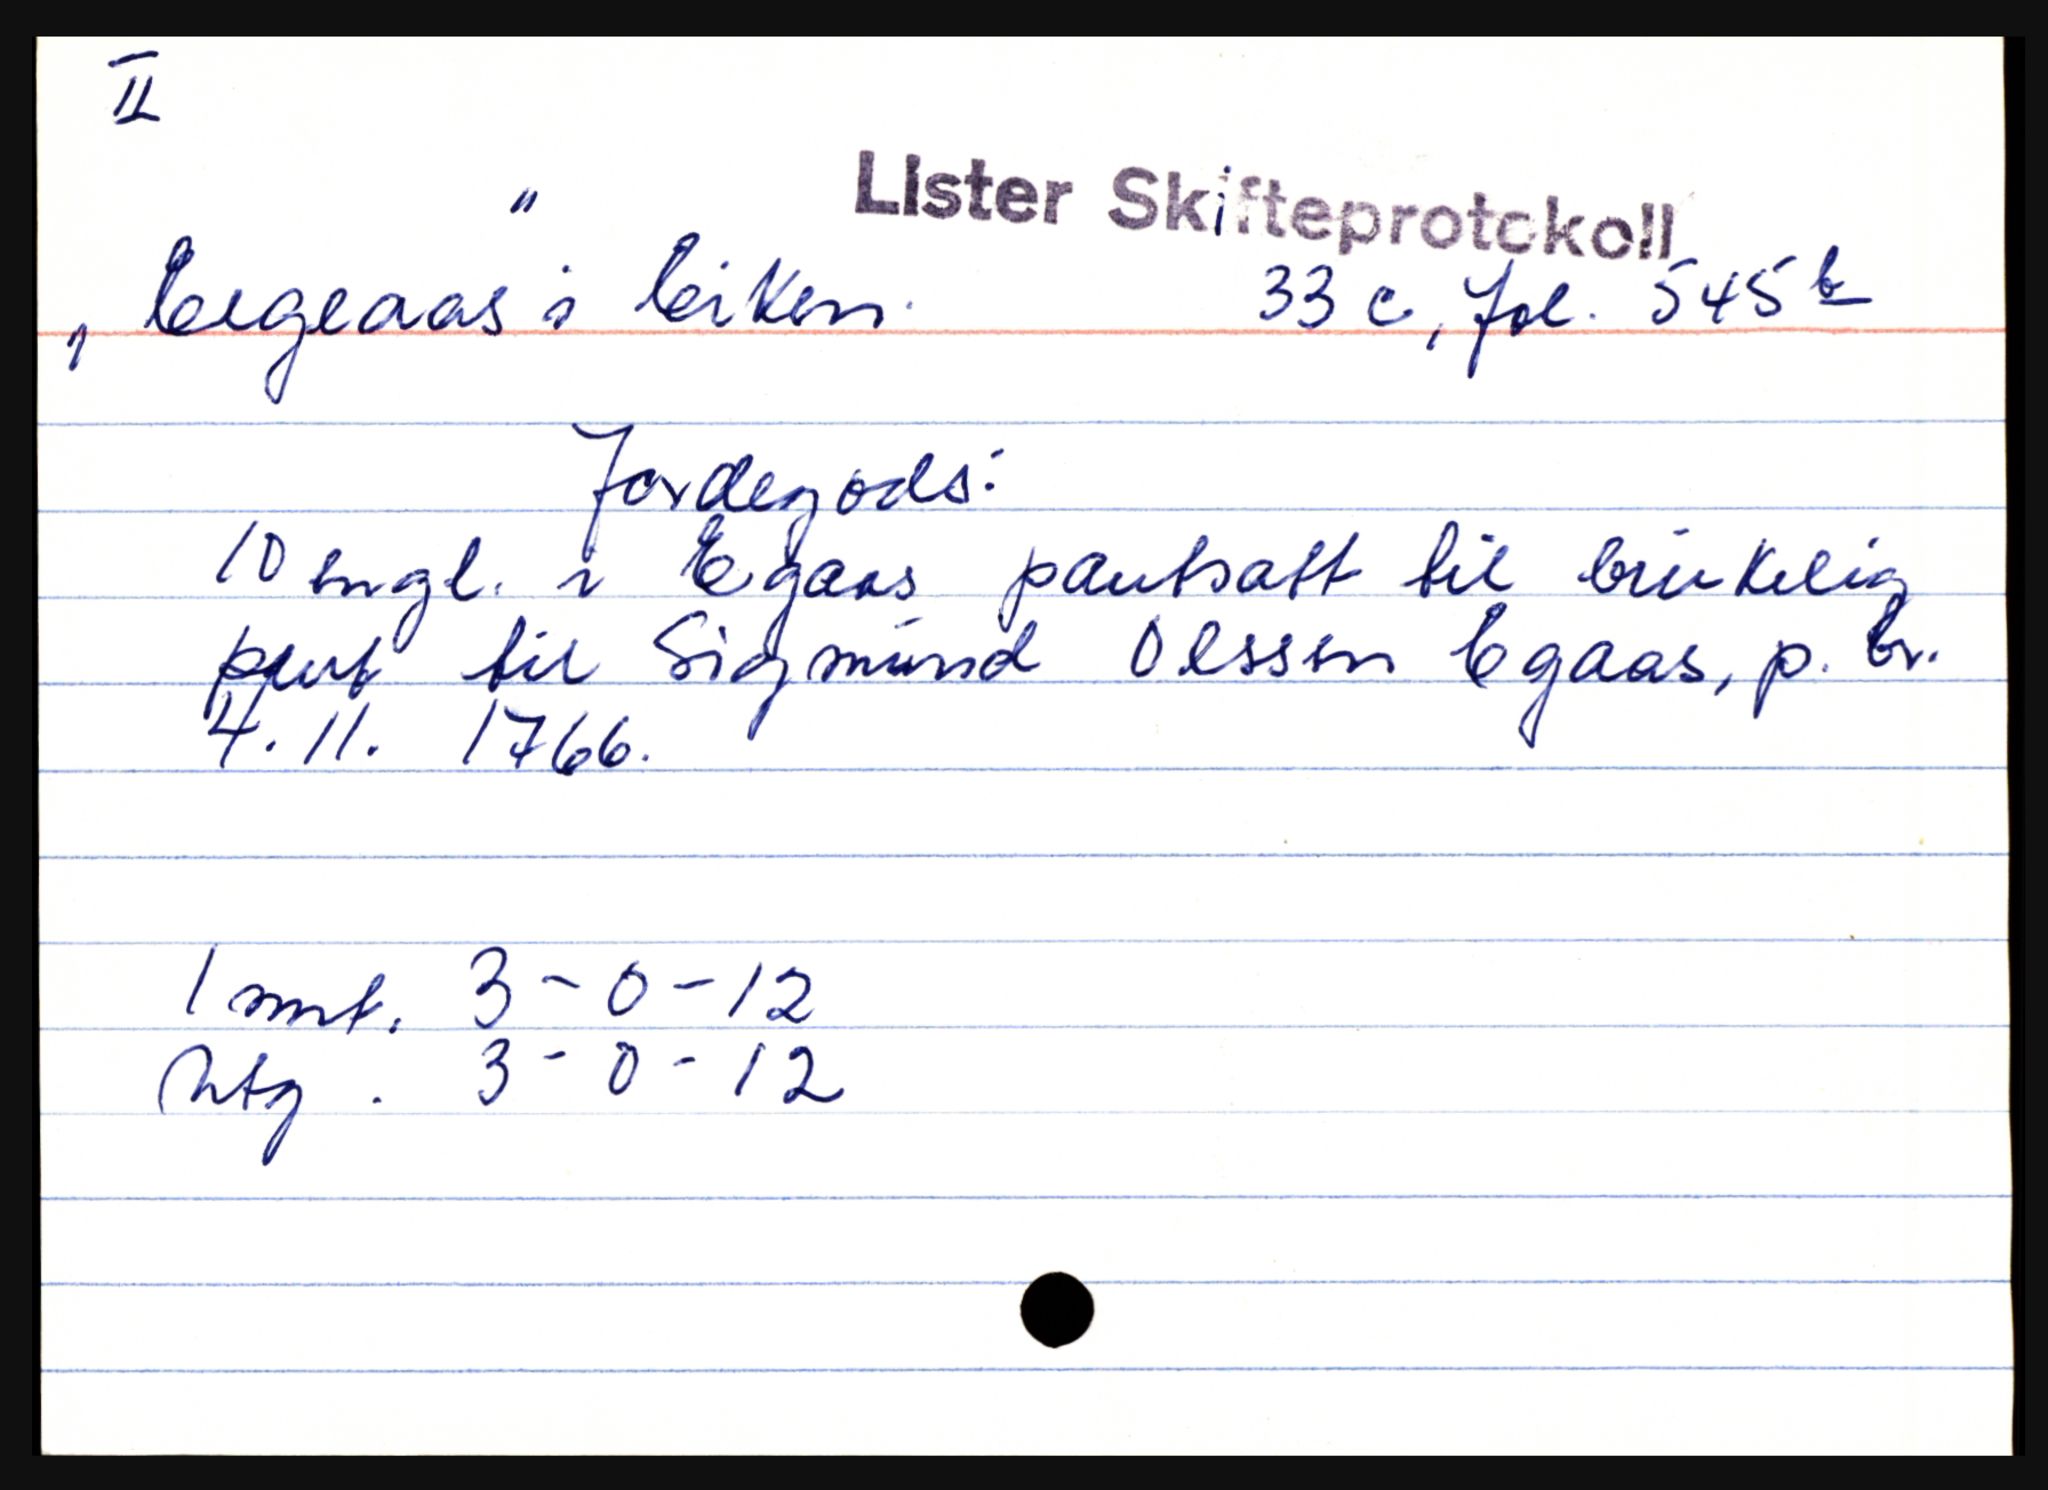 II
Lister Skifteprotokoll
„Eegeaas" i Eiken. 33 c, fol. 545 b
Jordegods:
10 engl. i Egaas pantsatt til brukelig
pant til Sigmund Olssen Egaas, p. br.
4. 11. 1766.
Innt. 3 - 0 - 12
Utg. 3 - 0 - 12